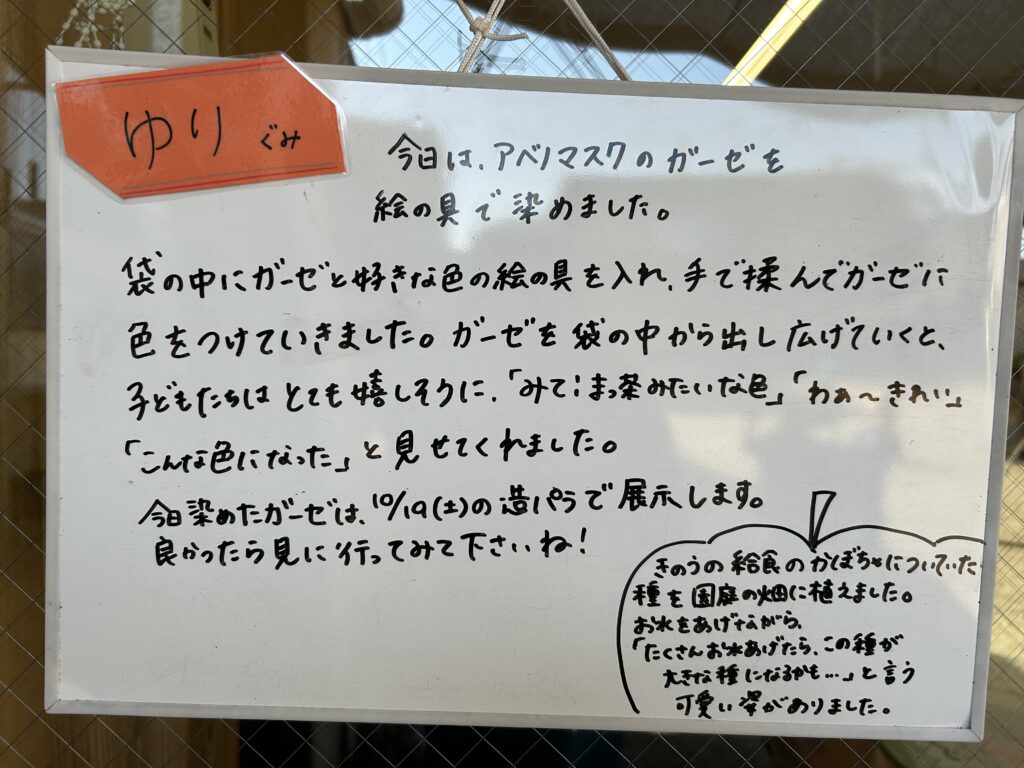 ゆり ぐみ
今日は、アベノマスクのガーゼを
絵の具で染めました。
袋の中にガーゼと好きな色の絵の具を入れ、手で揉んでガーゼに
色をつけていきました。ガーゼを袋の中から出し広げていくと、
子どもたちはとても嬉しそうに、「みて!まっ茶みたいな色」「わぁ〜きれい」
「こんな色になった」と見せてくれました。
今日染めたガーゼは、10/19(土)の造パラで展示します。
良かったら見に行ってみて下さいね!
きのうの給食のかぼちゃについていた
種を園庭の畑に植えました。
お水をあげながら、
「たくさんお水あげたら、この種が
大きな種になるかも…」と言う
可愛い姿がありました。